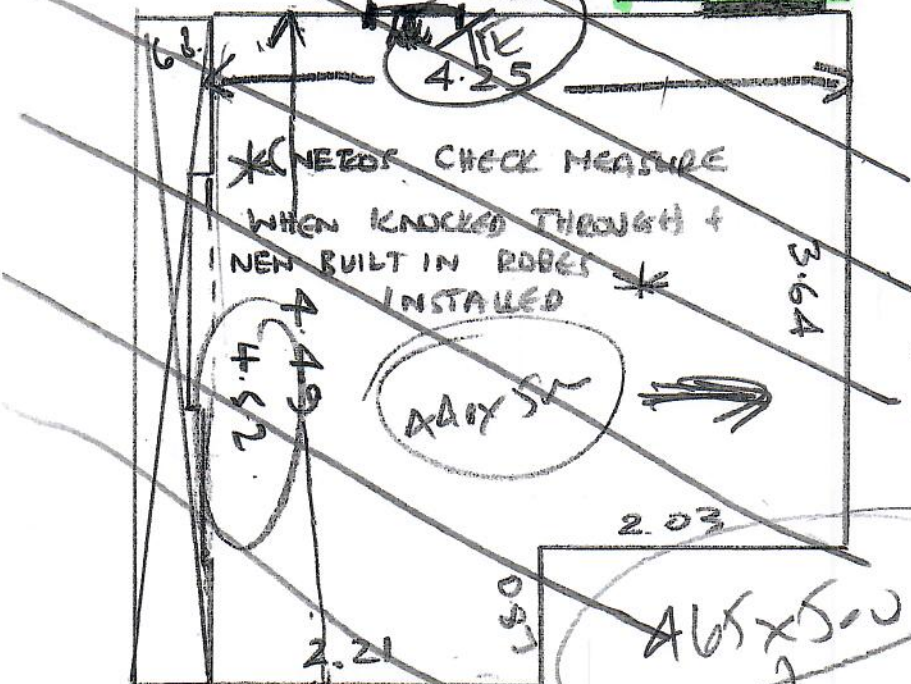 4.25
*(NEEDS CHECK MEASURE
WHEN KNOCKED THROUGH +
NEW BUILT IN ROBES *
INSTALLED
3.64
4.49
4.52
2.03
0.87
2.21